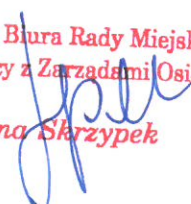 Biura Rady Miejsk
y z Zarządami Osi
na Skrzypek